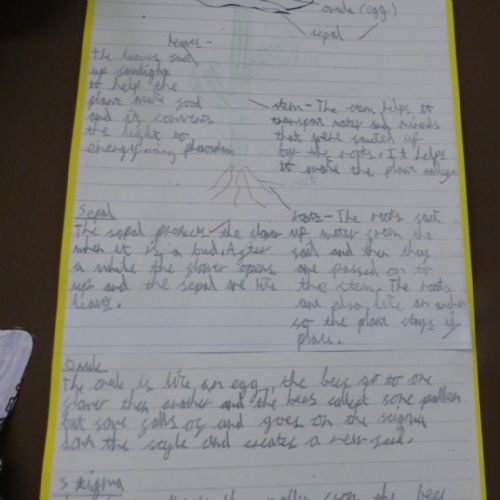 ovule (egg)
sepal
leaves -
The leaves suck
up sunlight
to help the
plant make food
and it converts
the light to
energy using
stem - The stem helps to
transport water and minerals
that were sucked up
by the roots. It helps
to make the plant
root
roots - The roots suck
up water from the
soil and then they
are passed on to
the stem. The roots
are also like an anchor
so the plant stays in
place.
Sepal
The sepal protects the flower
when it is a bud. After
a while the flower opens
up and the sepal are like
leaves.
Ovule
The ovule is like an egg, the bees go to one
flower then another and the bees collect some pollen
but some falls of and goes on the stigma
down the style and creates a new seed.
Stigma
pollen from the bees